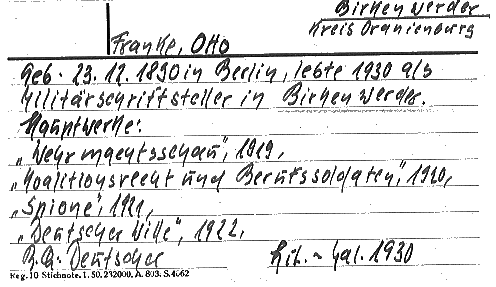 Birkenwerder
Kreis Oranienburg
Franke, Otto
Geb. 23.12.1890 in Berlin, lebte 1930 als
Militärschriftsteller in Birkenwerder.
Hauptwerke:
„Wehrmachtsschau", 1919,
„Koalitionsrecht und Berufssoldaten", 1920,
„Spione", 1921,
„Deutscher Wille", 1922,
Deutscher Lit.-Kal. 1930
Reg. 10 Stichnote. 1. 50. 232000. A. 803. S. 4662